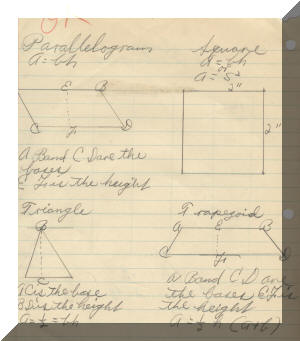 OK
Parallelogram
a = bh
E B
C F D
A B and C D are the
bases
E F is the height
Square
a = bh
or
a = s²
2"
2"
Triangle
B
C
A C is the base
B D is the height
a = ½ = bh
Trapezoid
A E B
C F D
A B and C D are
the bases E F is
the height
a = ½ h (a+b)